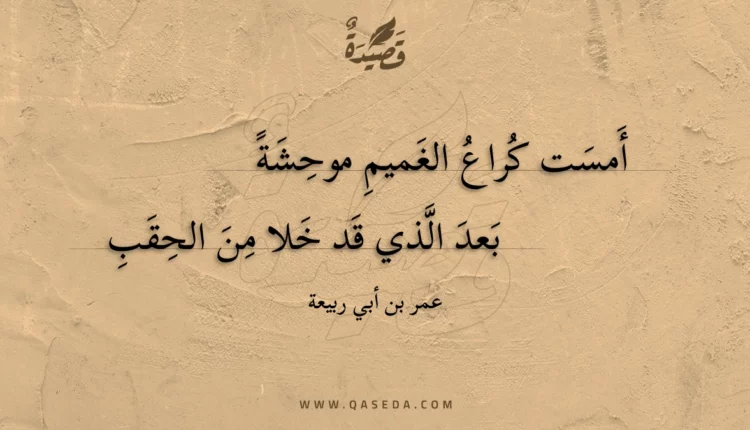 قَصِيْدَةٌ
أَمسَت كُراعُ الغَميمِ موحِشَةً
بَعدَ الَّذي قَد خَلا مِنَ الحِقَبِ
عمر بن أبي ربيعة
WWW.QASEDA.COM